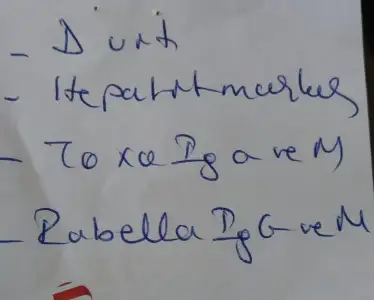 - D vit
- Hepatit marker
- Toxo Ig G ve M
- Rubella Ig G ve M